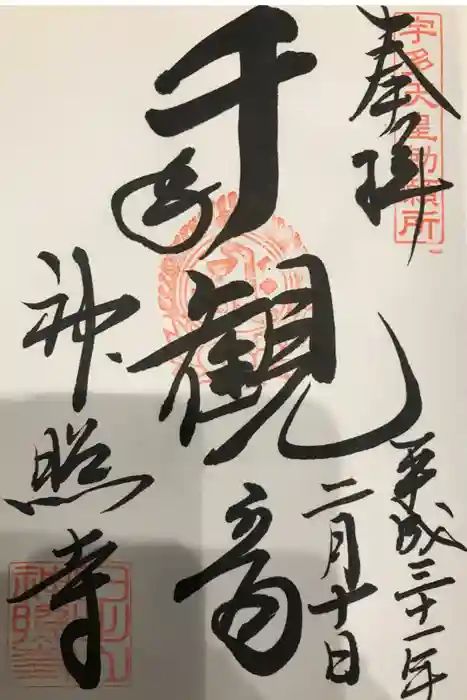 奉拝
宇多天皇勅願所
平成三十一年
二月十日
千手観音
神照寺